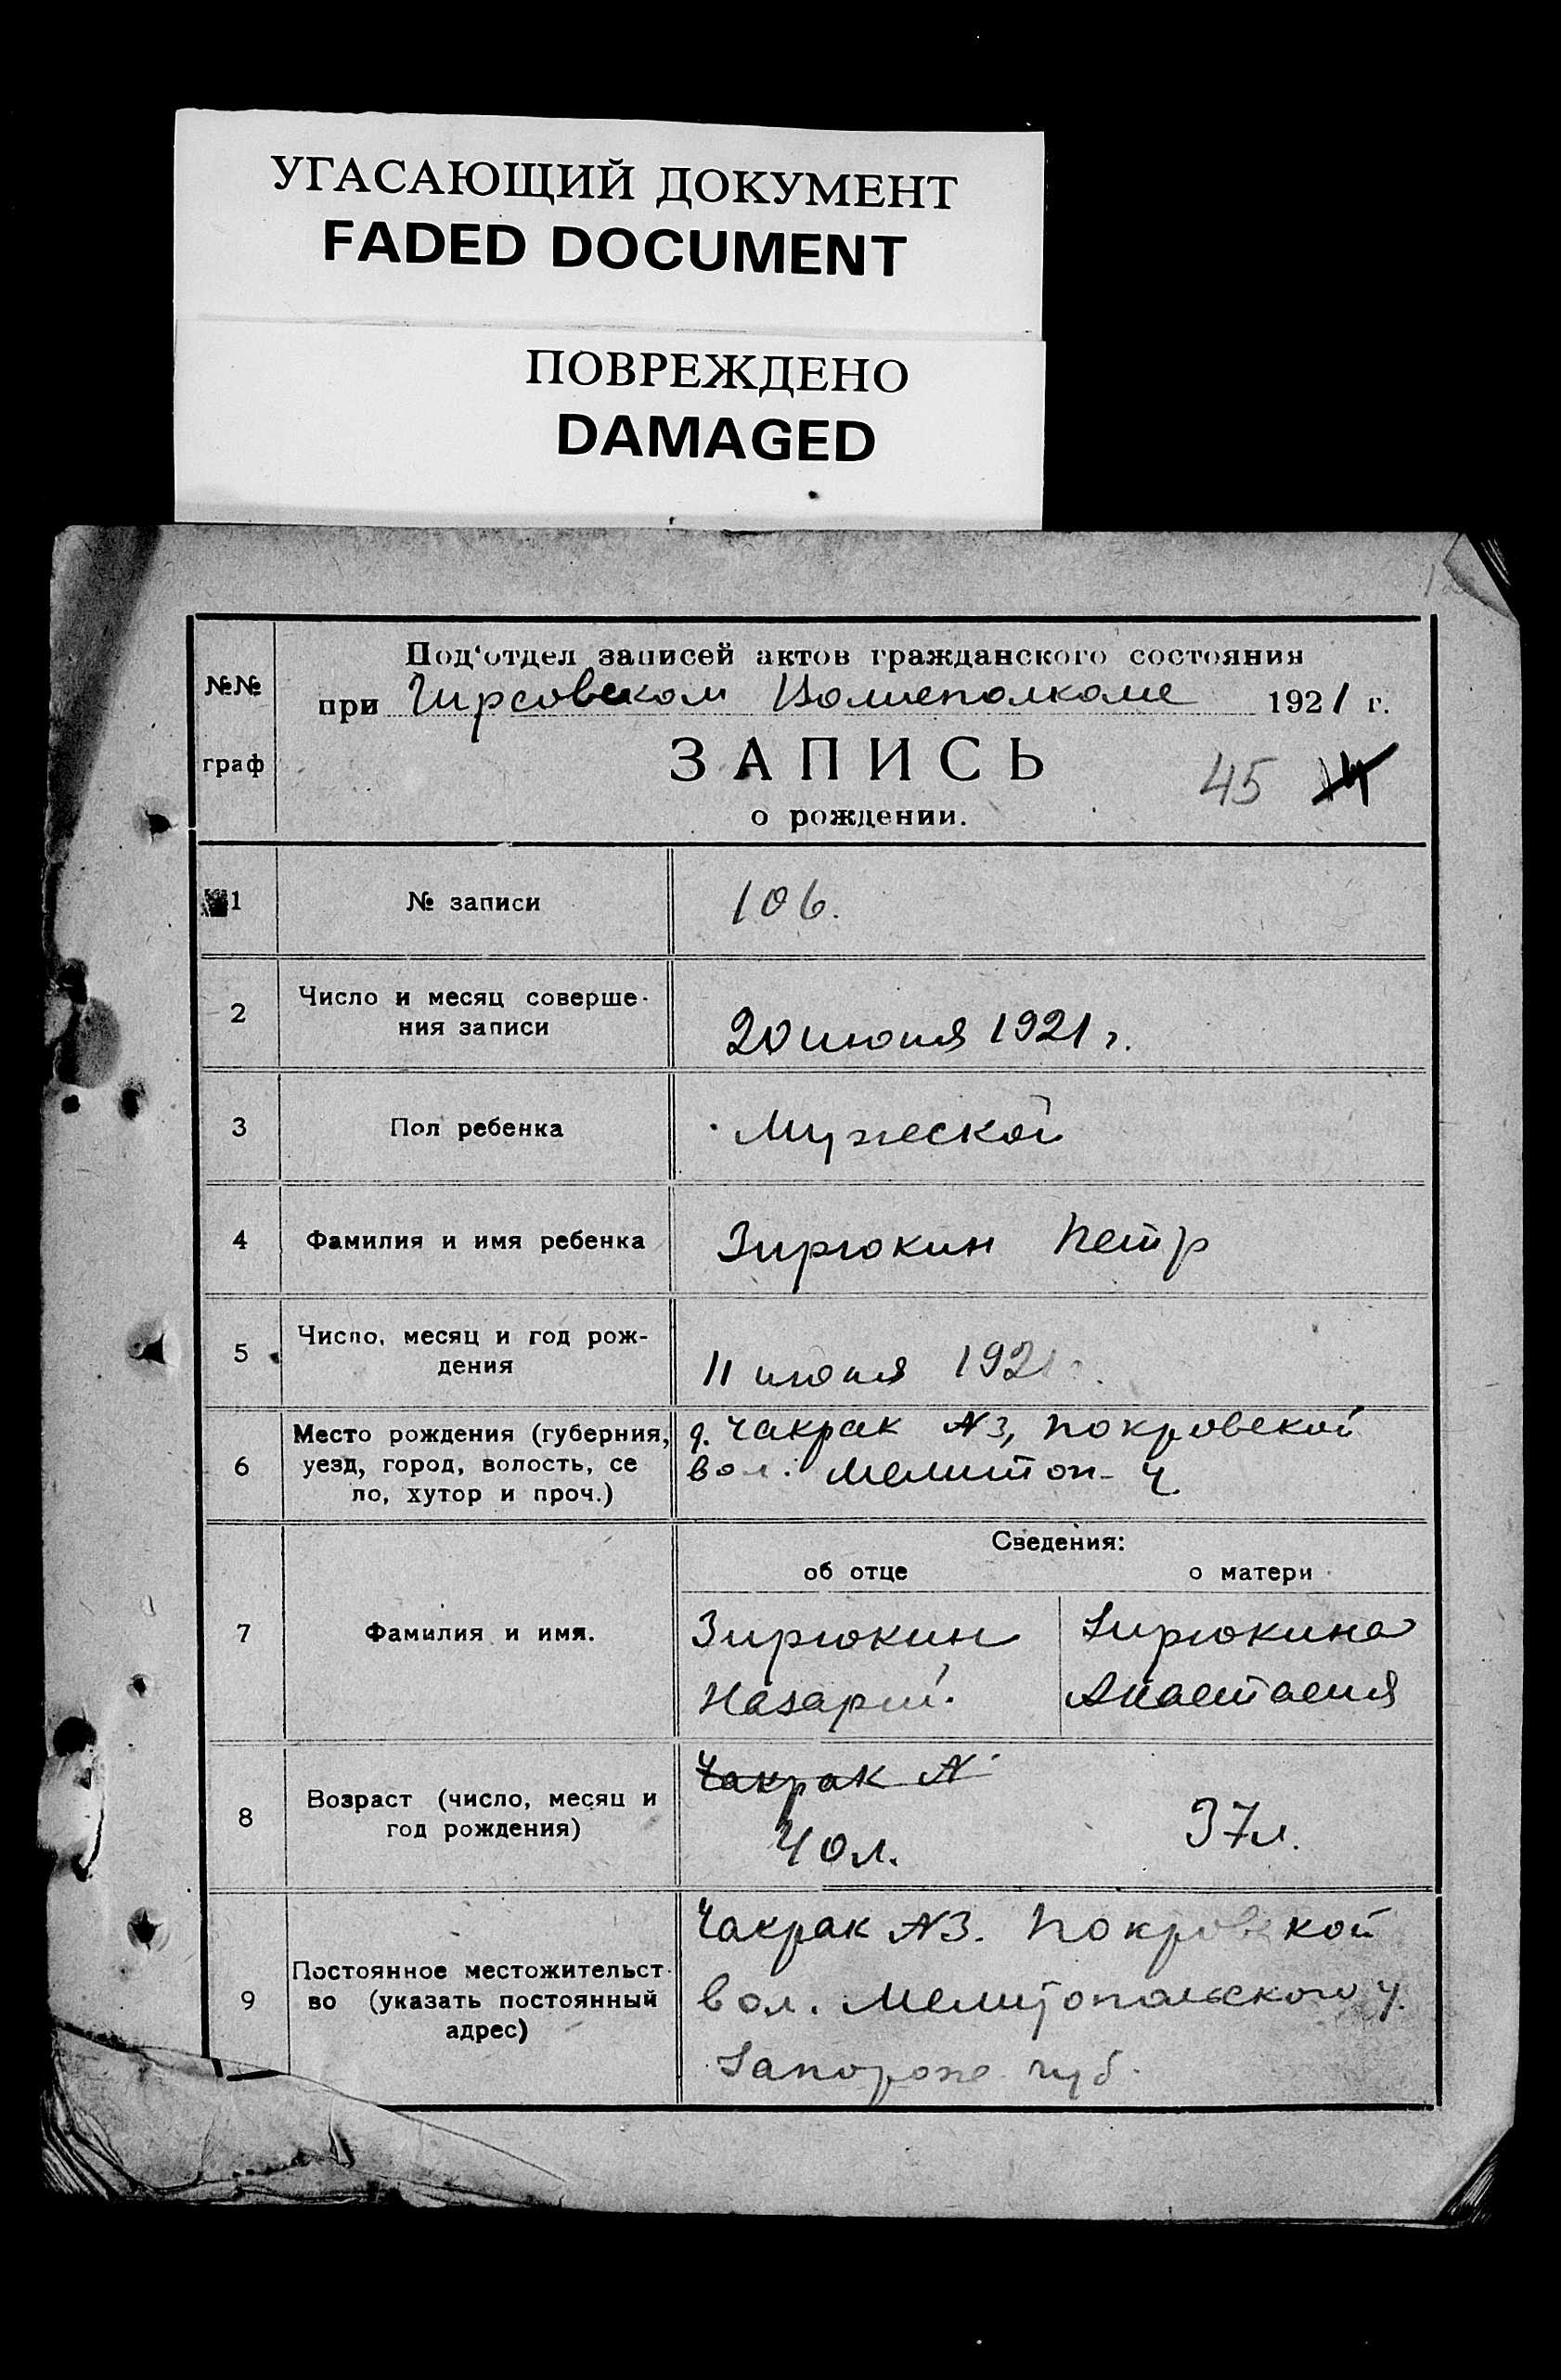 УГАСАЮЩИЙ ДОКУМЕНТ
FADED DOCUMENT
ПОВРЕЖДЕНО
DAMAGED
№№
граф
Под'отдел записей актов гражданского состояния
при Чирсовском Волисполкоме 1921 г.
ЗАПИСЬ
45 14
о рождении.
1 № записи 106.
2 Число и месяц соверше-
ния записи 20 июня 1921 г.
3 Пол ребенка Мужеской
4 Фамилия и имя ребенка Зирюкин Петр
5 Число, месяц и год рож-
дения 11 июня 1921
6 Место рождения (губерния, д. Чакрак №3, Покровской
уезд, город, волость, се вол. Мелитоп- у.
ло, хутор и проч.)
Сведения:
об отце о матери
7 Фамилия и имя. Зирюкин Зирюкина
Назарий. Анастасия
Чакрак №
8 Возраст (число, месяц и
год рождения) 40 л. 37 л.
Чакрак №3. Покровской
9 Постоянное местожительст-
во (указать постоянный вол. Мелитопольского у.
адрес)
Запорож. губ.